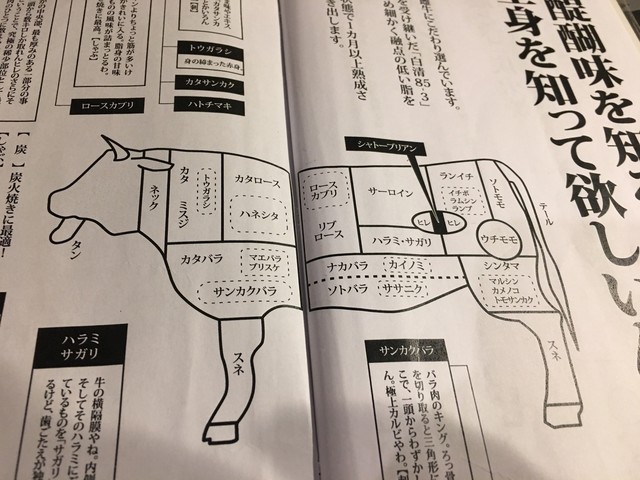 醍醐味を知
身を知って欲しい
にこだわり選んでいます。
を受け継いだ、「白清85・3」
め細かく融点の低い脂を
状態で1カ月以上熟成さ
き出します。
トウガラシ
身の締まった赤身。
カタサンカク
ハトチマキ
ロースカブリ
【炭】炭火焼きに最適！
シャトーブリアン
タン
ネック
カタ
ミスジ
トウガラシ
カタロース
ハネシタ
カタバラ
マエバラ
ブリスケ
サンカクバラ
スネ
ロース
カブリ
リブ
ロース
サーロイン
ハラミ・サガリ
ヒレ
ヒレ
ランイチ
イチボ
ラムシン
ランプ
ソトモモ
ウチモモ
テール
ナカバラ
カイノミ
ソトバラ
ササニク
シンタマ
マルシン
カメノコ
トモサンカク
スネ
ハラミ
サガリ
牛の横隔膜やね。内側
そしてそのハラミに
ているものを「サガリ
るけど、歯ごたえが独
サンカクバラ
バラ肉のキング。ろっ骨
を切り取ると三角形に
こで、一頭からわずかし
ん。極上カルビやわ。